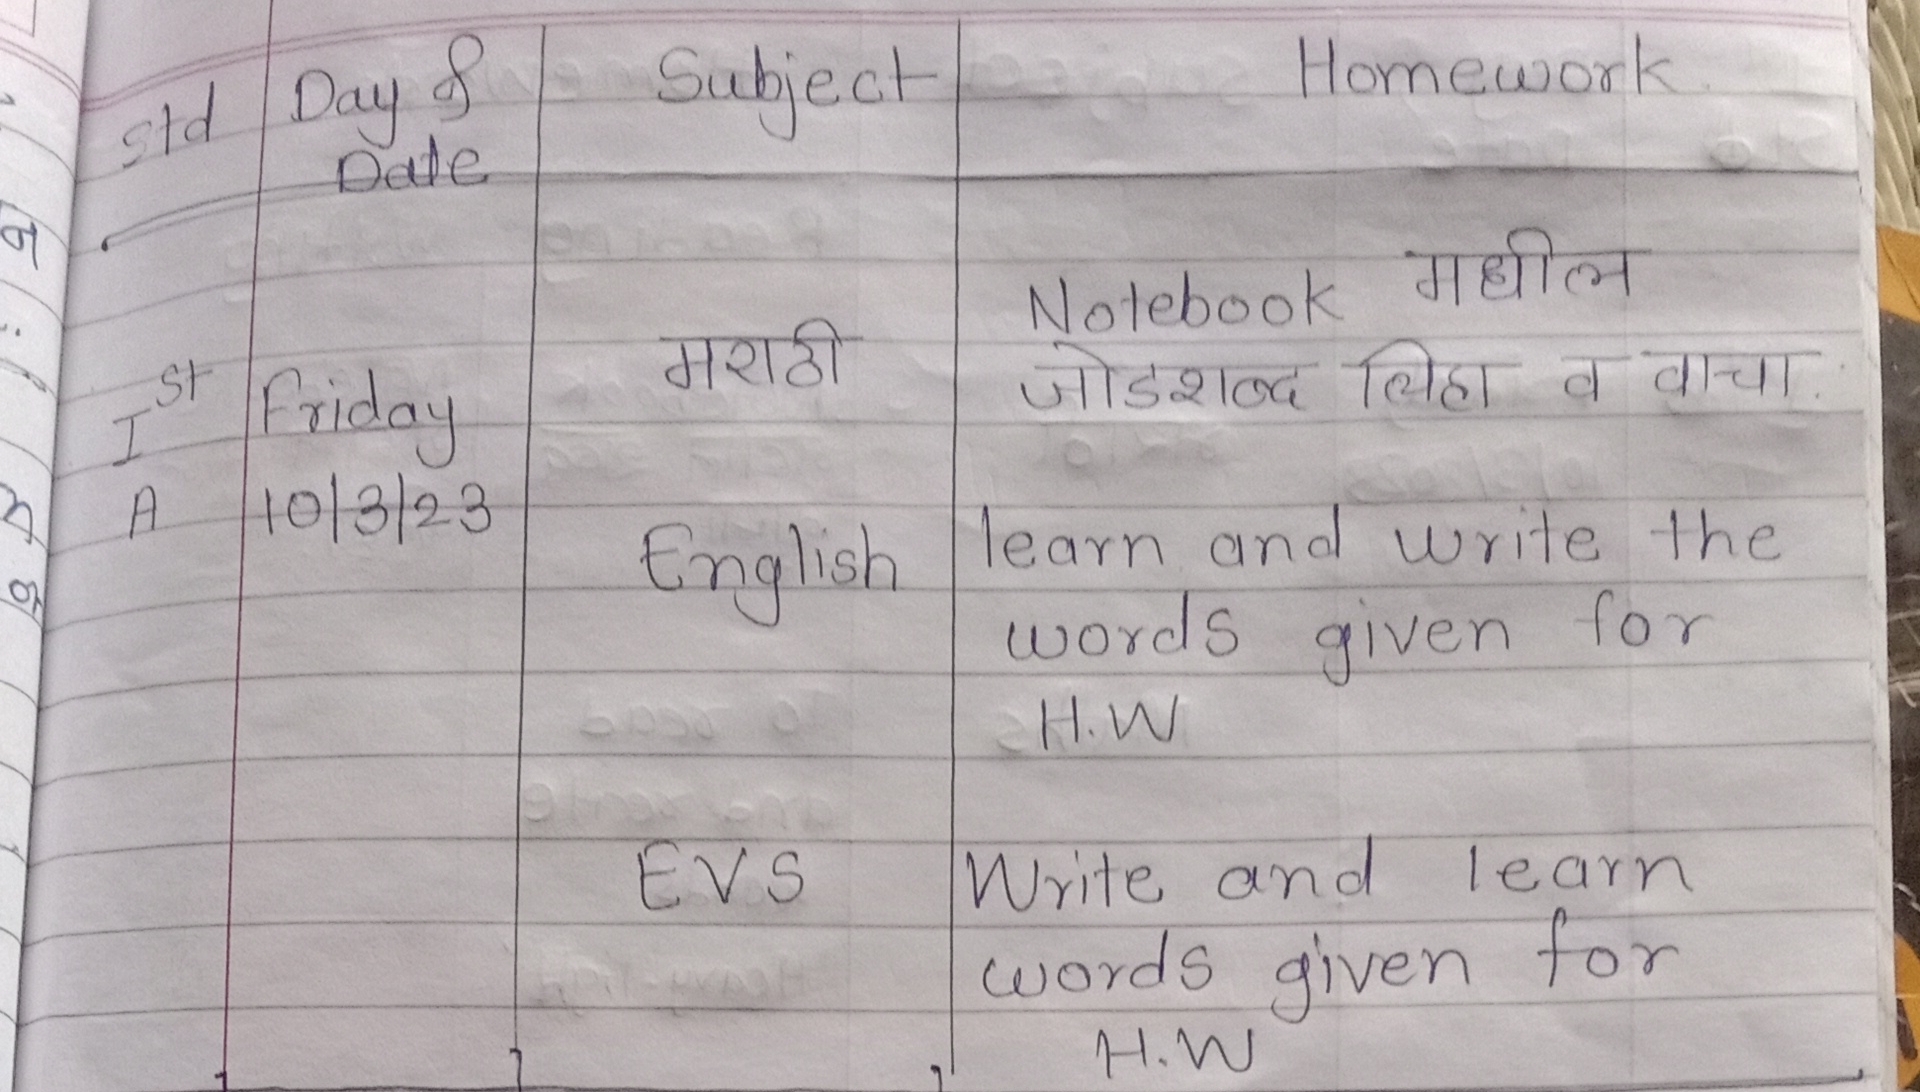 std Day & Subject Homework
Date
Notebook मधील
मराठी जोडशब्द लिहा व वाचा.
Ist Friday
A 10/3/23
English learn and write the
words given for
H.W
EVS Write and learn
words given for
H.W